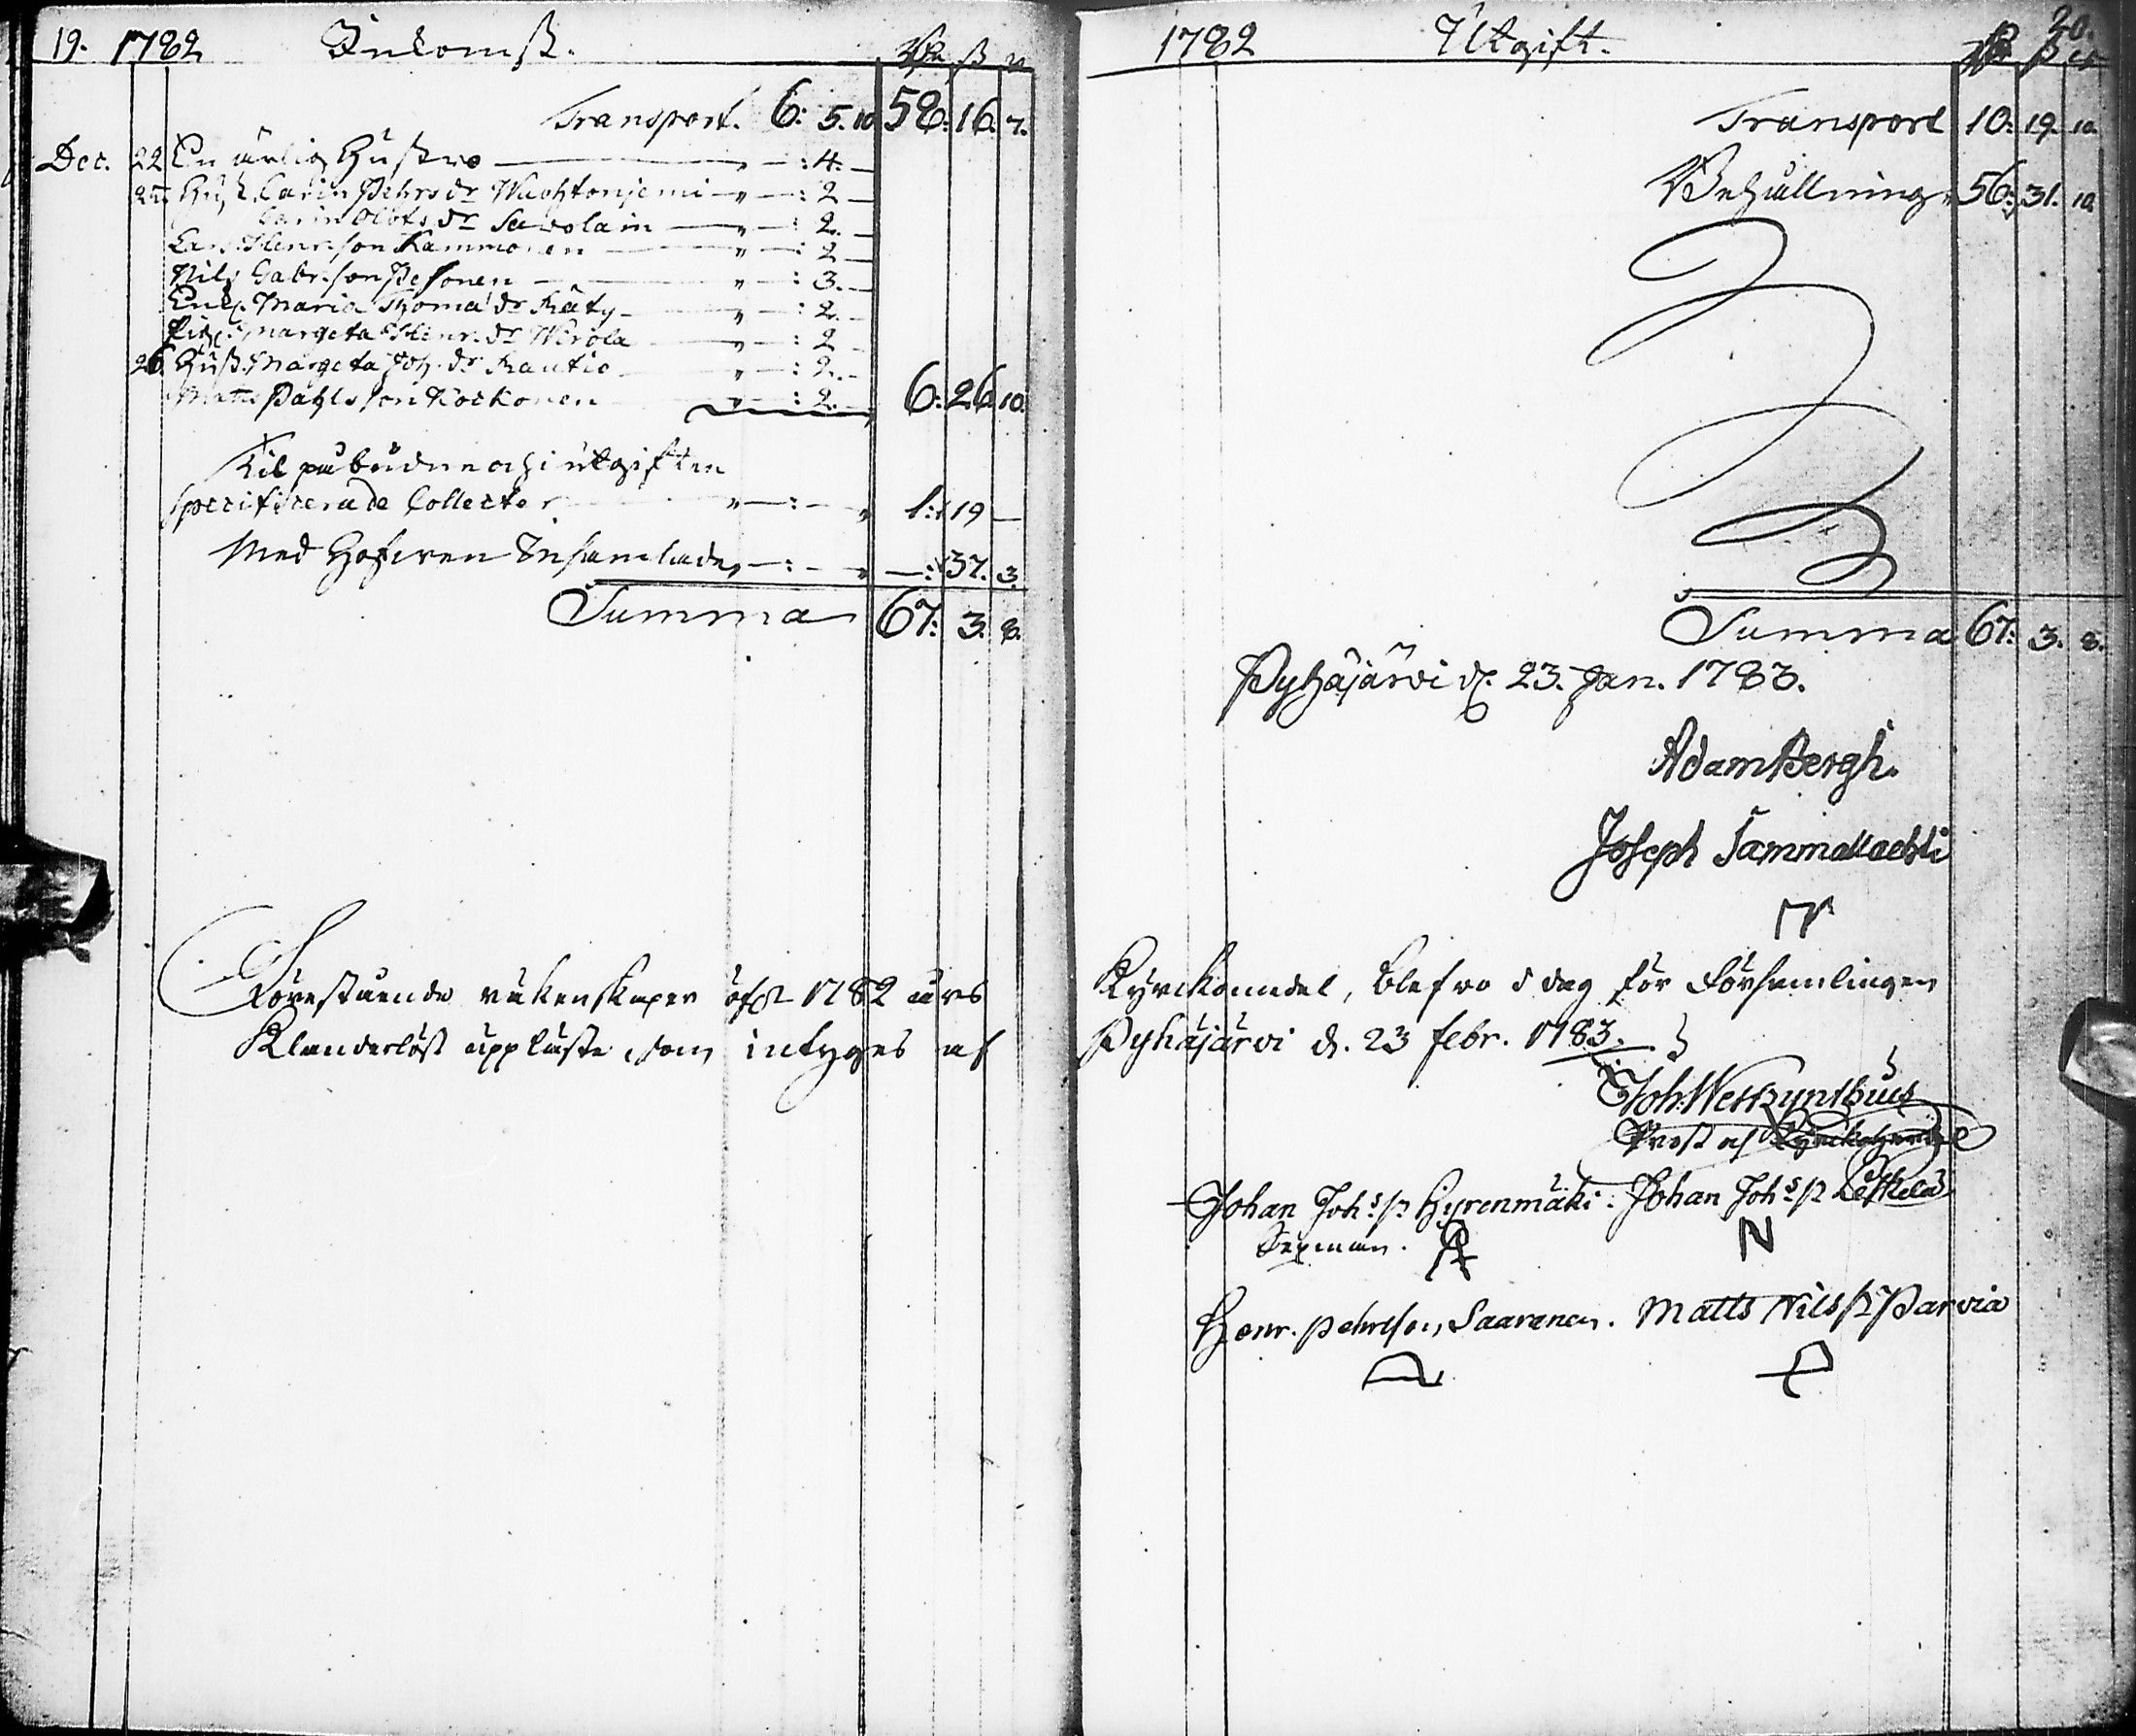 19. 1782 Inkomst. Rdr ß rs
Transport. 6: 5. 10 58: 16. 7.
Dec. 22 En ärlig Hustro — " — : 4. —
25. Hust. Carin Pehrs dr Wuohtoniemi — " — : 2 —
Carin Olofs dr Savolain — " — : 2. —
Lars Henr. son Kammonen — " — : 2 —
Nils Gabr. son Pesonen — " — : 3. —
Enk. Maria Thoma dr Räty — " — : 2. —
Pig. Margeta Henr. dr Wirola — " — : 2 —
26. Hust. Margeta Joh. dr Rautio — " — : 2. —
Matts Påhls son Korkonen — " — : 2. — 6: 26. 10.
Til påbudne och i utgiften
specificerade Collecter — " — : — " 1: 19 —
Med Hofwen Insamlade, — : — " — : 37. 3.
Summa 67: 3. 8.
Förestående räkenskaper öfver 1782 års
Klanderlöst uppläste som intyges af
20.
1782 Utgift. Rdr ß rs
Transport 10: 19. 10.
Behållning " 56: 31. 10.
Summa 67: 3. 8.
Pyhäjärvi d. 23. Jan. 1783.
Adam Bergh.
Joseph Tammalachti
Kyrckomedel, blefvo i dag för Församlingen
Pyhäjärvi d. 23 febr. 1783.
Joh: Westzynthius
Prost och Kyrckoherde
Johan Johs. sn Hyrenmäki: Johan Johs. sn Leskelä
Sexman. N
Henr. Pehrsson Saaranen. Matts Nils sn Parvia